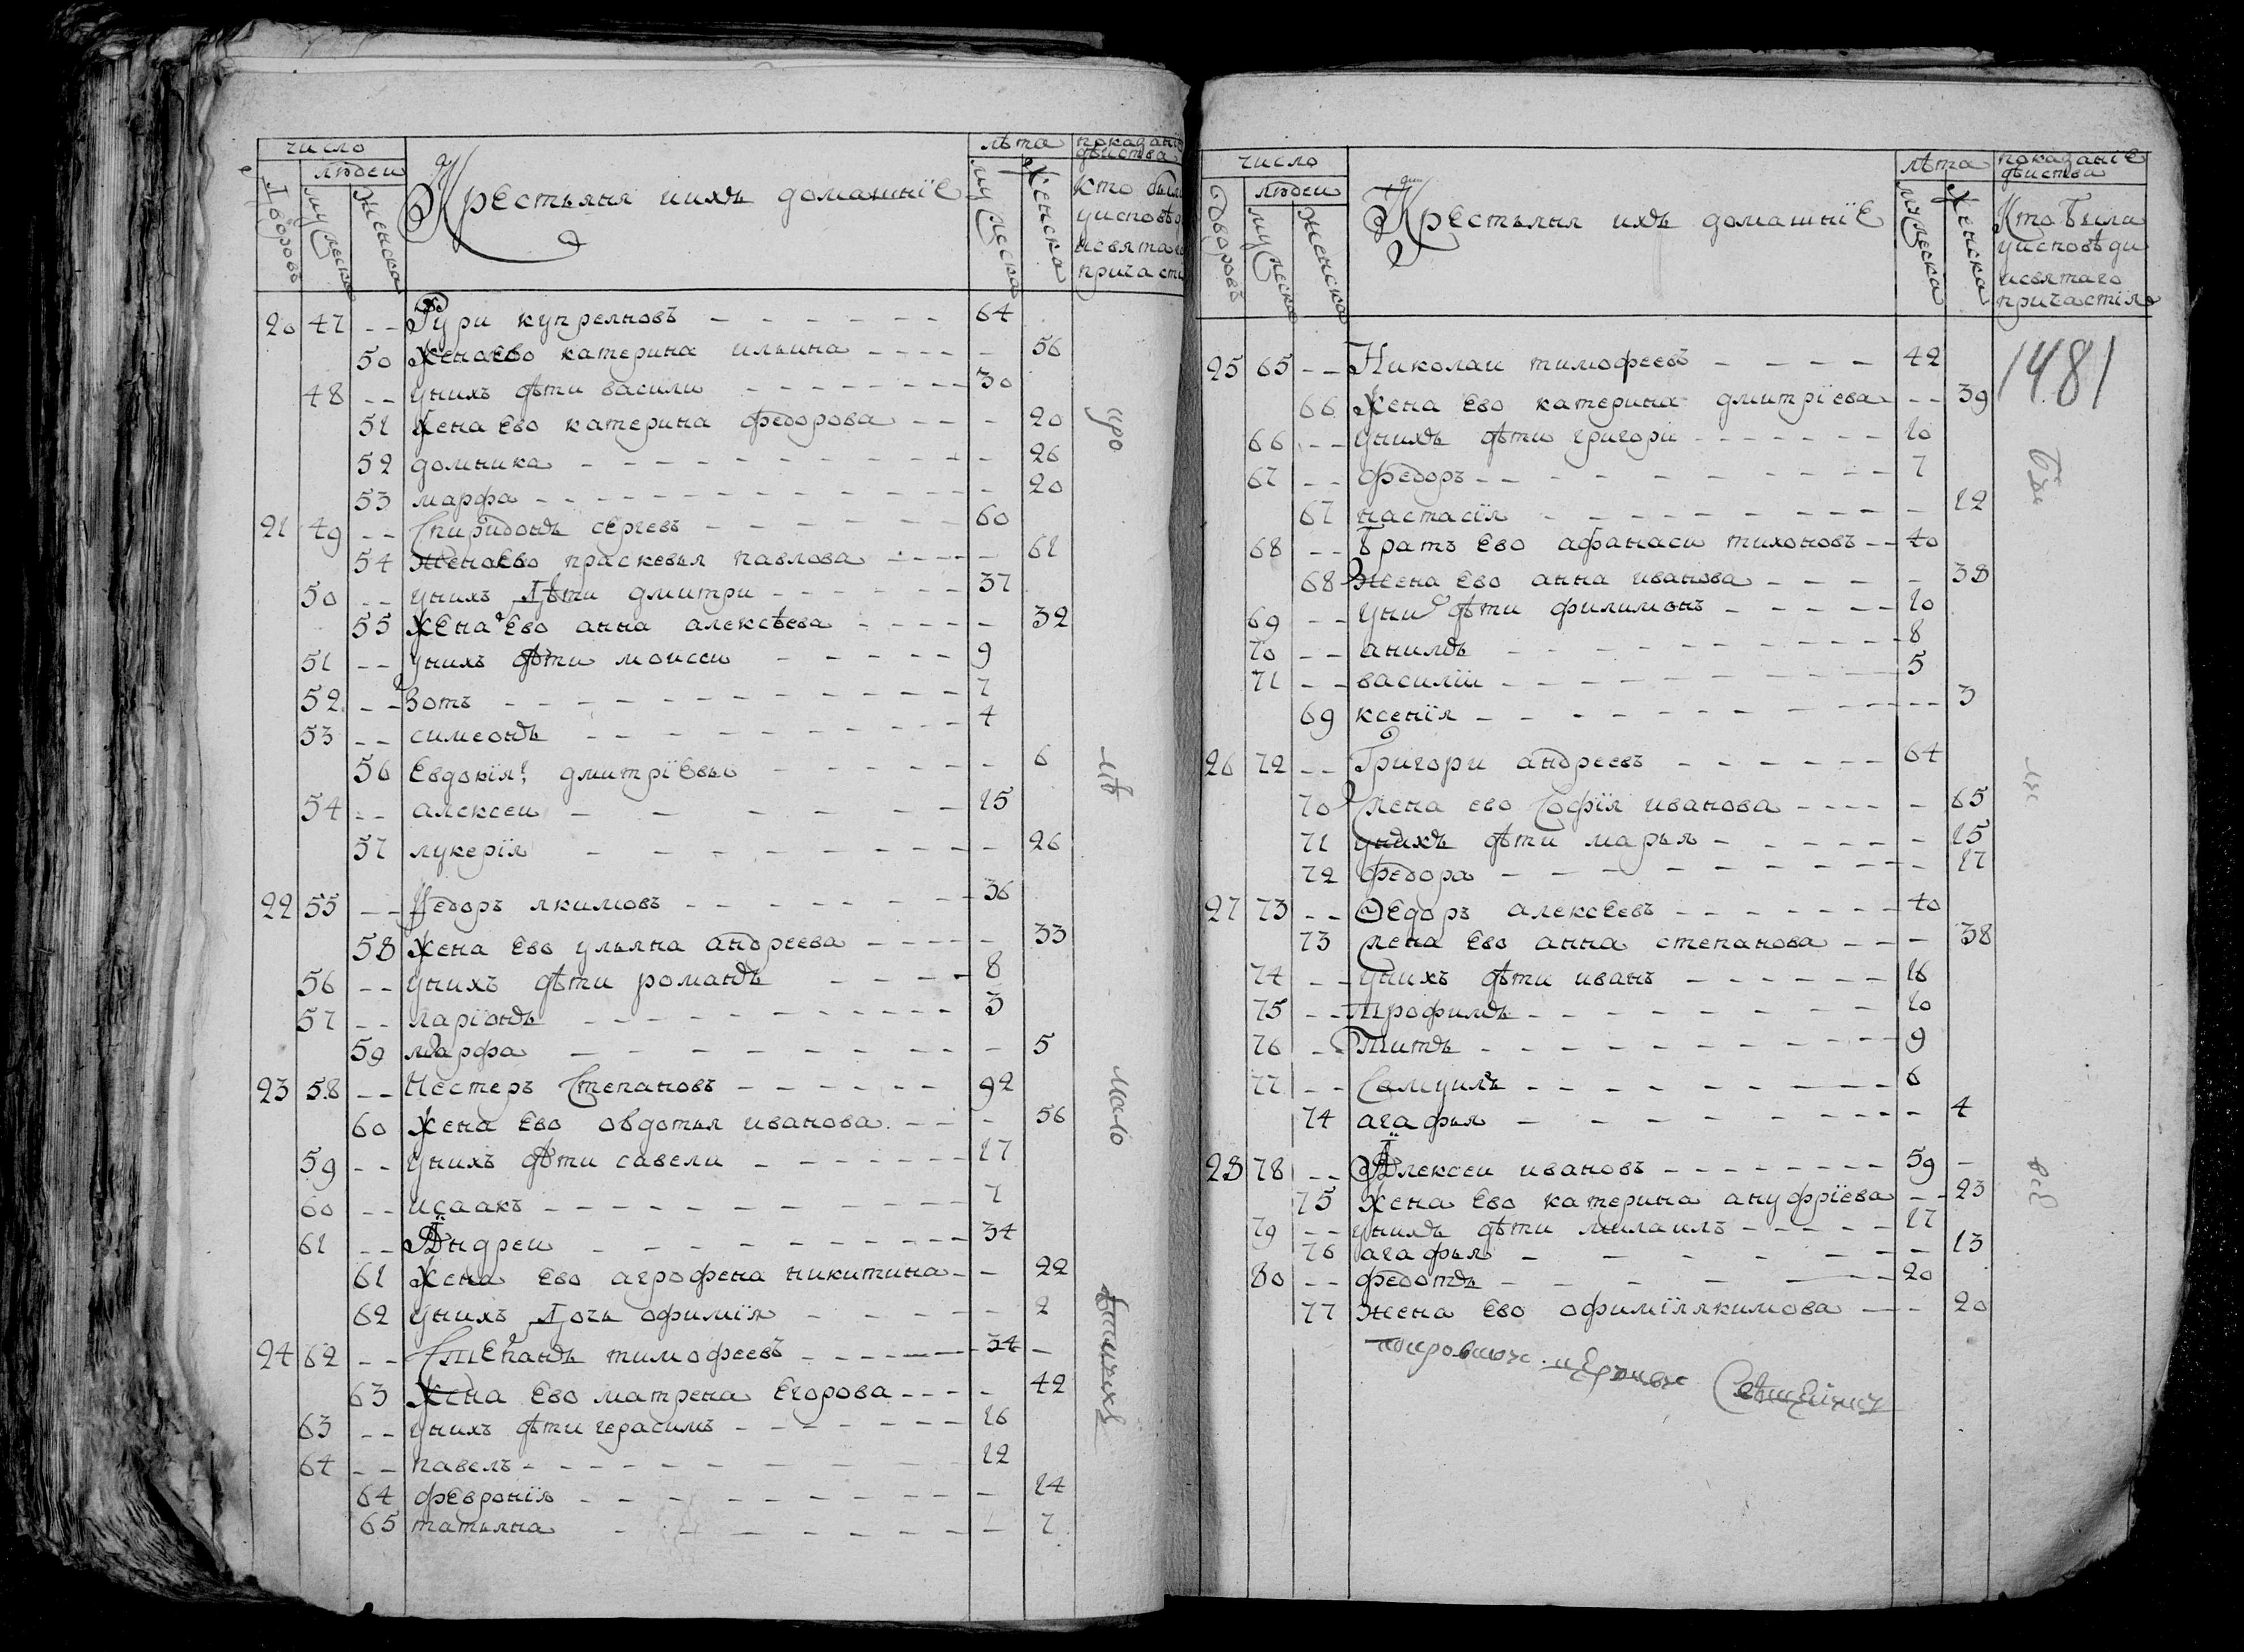 число
людеи
Дворовъ
мужеска
женска
Крестьяня иихъ домашнїе
лѣта
мужеска
Женска
показанїе
дѣиства
Кто были
уисповѣд
исвятаго
причасти
20 47 -- Гури купреяновъ 64
50 женаево катерина ильина 56
48 -- унихъ дѣти васили 30
51 Жена Ево катерина федорова 20
52 домника 26
53 марфа 20
21 49 -- Спиридонъ сергевъ 60
54 женаЕво прасковья павлова 61
50 -- унихъ Дѣти дмитри 37
55 Жена Ево анна алексѣева 32
51 -- унихъ дѣти моисеи 9
52 -- Зотъ 7
53 -- симеонъ 4
56 Евдокїя дмитрїевы 6
54 -- алексеи 15
57 лукерїя 26
22 55 -- Федоръ якимовъ 36
58 Жена Ево ульяна андреева 33
56 -- унихъ дѣти романъ 8
57 -- ларїонъ 3
59 марфа 5
23 58 -- Нестеръ Степановъ 92
60 Жена Ево овдотья иванова 56
59 -- унихъ дѣти савели 17
60 -- исаакъ 7
61 -- Андреи 34
61 Жена Ево агрофена никитина 22
62 унихъ Дочь офимїя 2
24 62 -- Степанъ тимофеевъ 34
63 Жена Ево матрена Егорова 42
63 -- унихъ дѣти герасимъ 16
64 -- павелъ 12
64 февронїя 14
65 татьяна 7
число
людеи
Дворовъ
мужеска
женска
Крестьяня ихъ домашнїе
лѣта
мужеска
Женска
показанїе
дѣиства
Кто была
уисповѣди
исвятаго
причастїя
1481
25 65 -- Николаи тимофеевъ 42
66 Жена Ево катерина дмитрїева 39
66 -- унихъ дѣти григори 10
67 -- федоръ 7
67 настасїя 12
68 -- братъ Ево афанаси тихоновъ 40
68 Жена Ево анна иванова 38
69 -- уних дѣти филимонъ 10
70 -- 8
71 -- василїи 5
69 ксенїя 3
26 72 -- Григори андреевъ 64
70 жена ево Софїя иванова 65
71 унихъ дѣти марья 15
72 федора 17
27 73 -- Федоръ алексѣевъ 40
73 жена Ево анна степанова 38
74 -- унихъ дѣти иванъ 16
75 -- трофимъ 10
76 -- Титъ 9
77 -- Самуилъ 6
74 агафья 4
28 78 -- Алексеи ивановъ 59
75 Жена Ево катерина ануфрїева 23
79 -- унихъ дѣти михаилъ 17
76 агафья 13
80 -- федотъ 20
77 жена Ево офимїя якимова 20